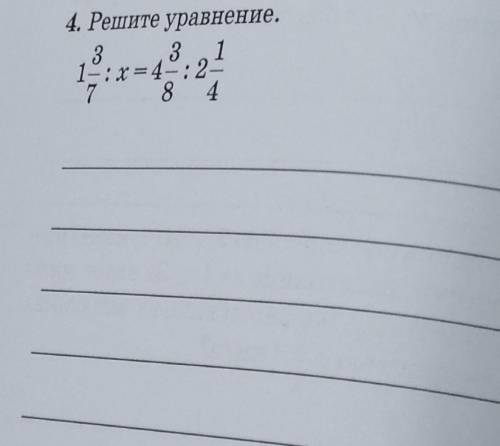 4. Решите уравнение.
1 3/7 : x = 4 3/8 : 2 1/4